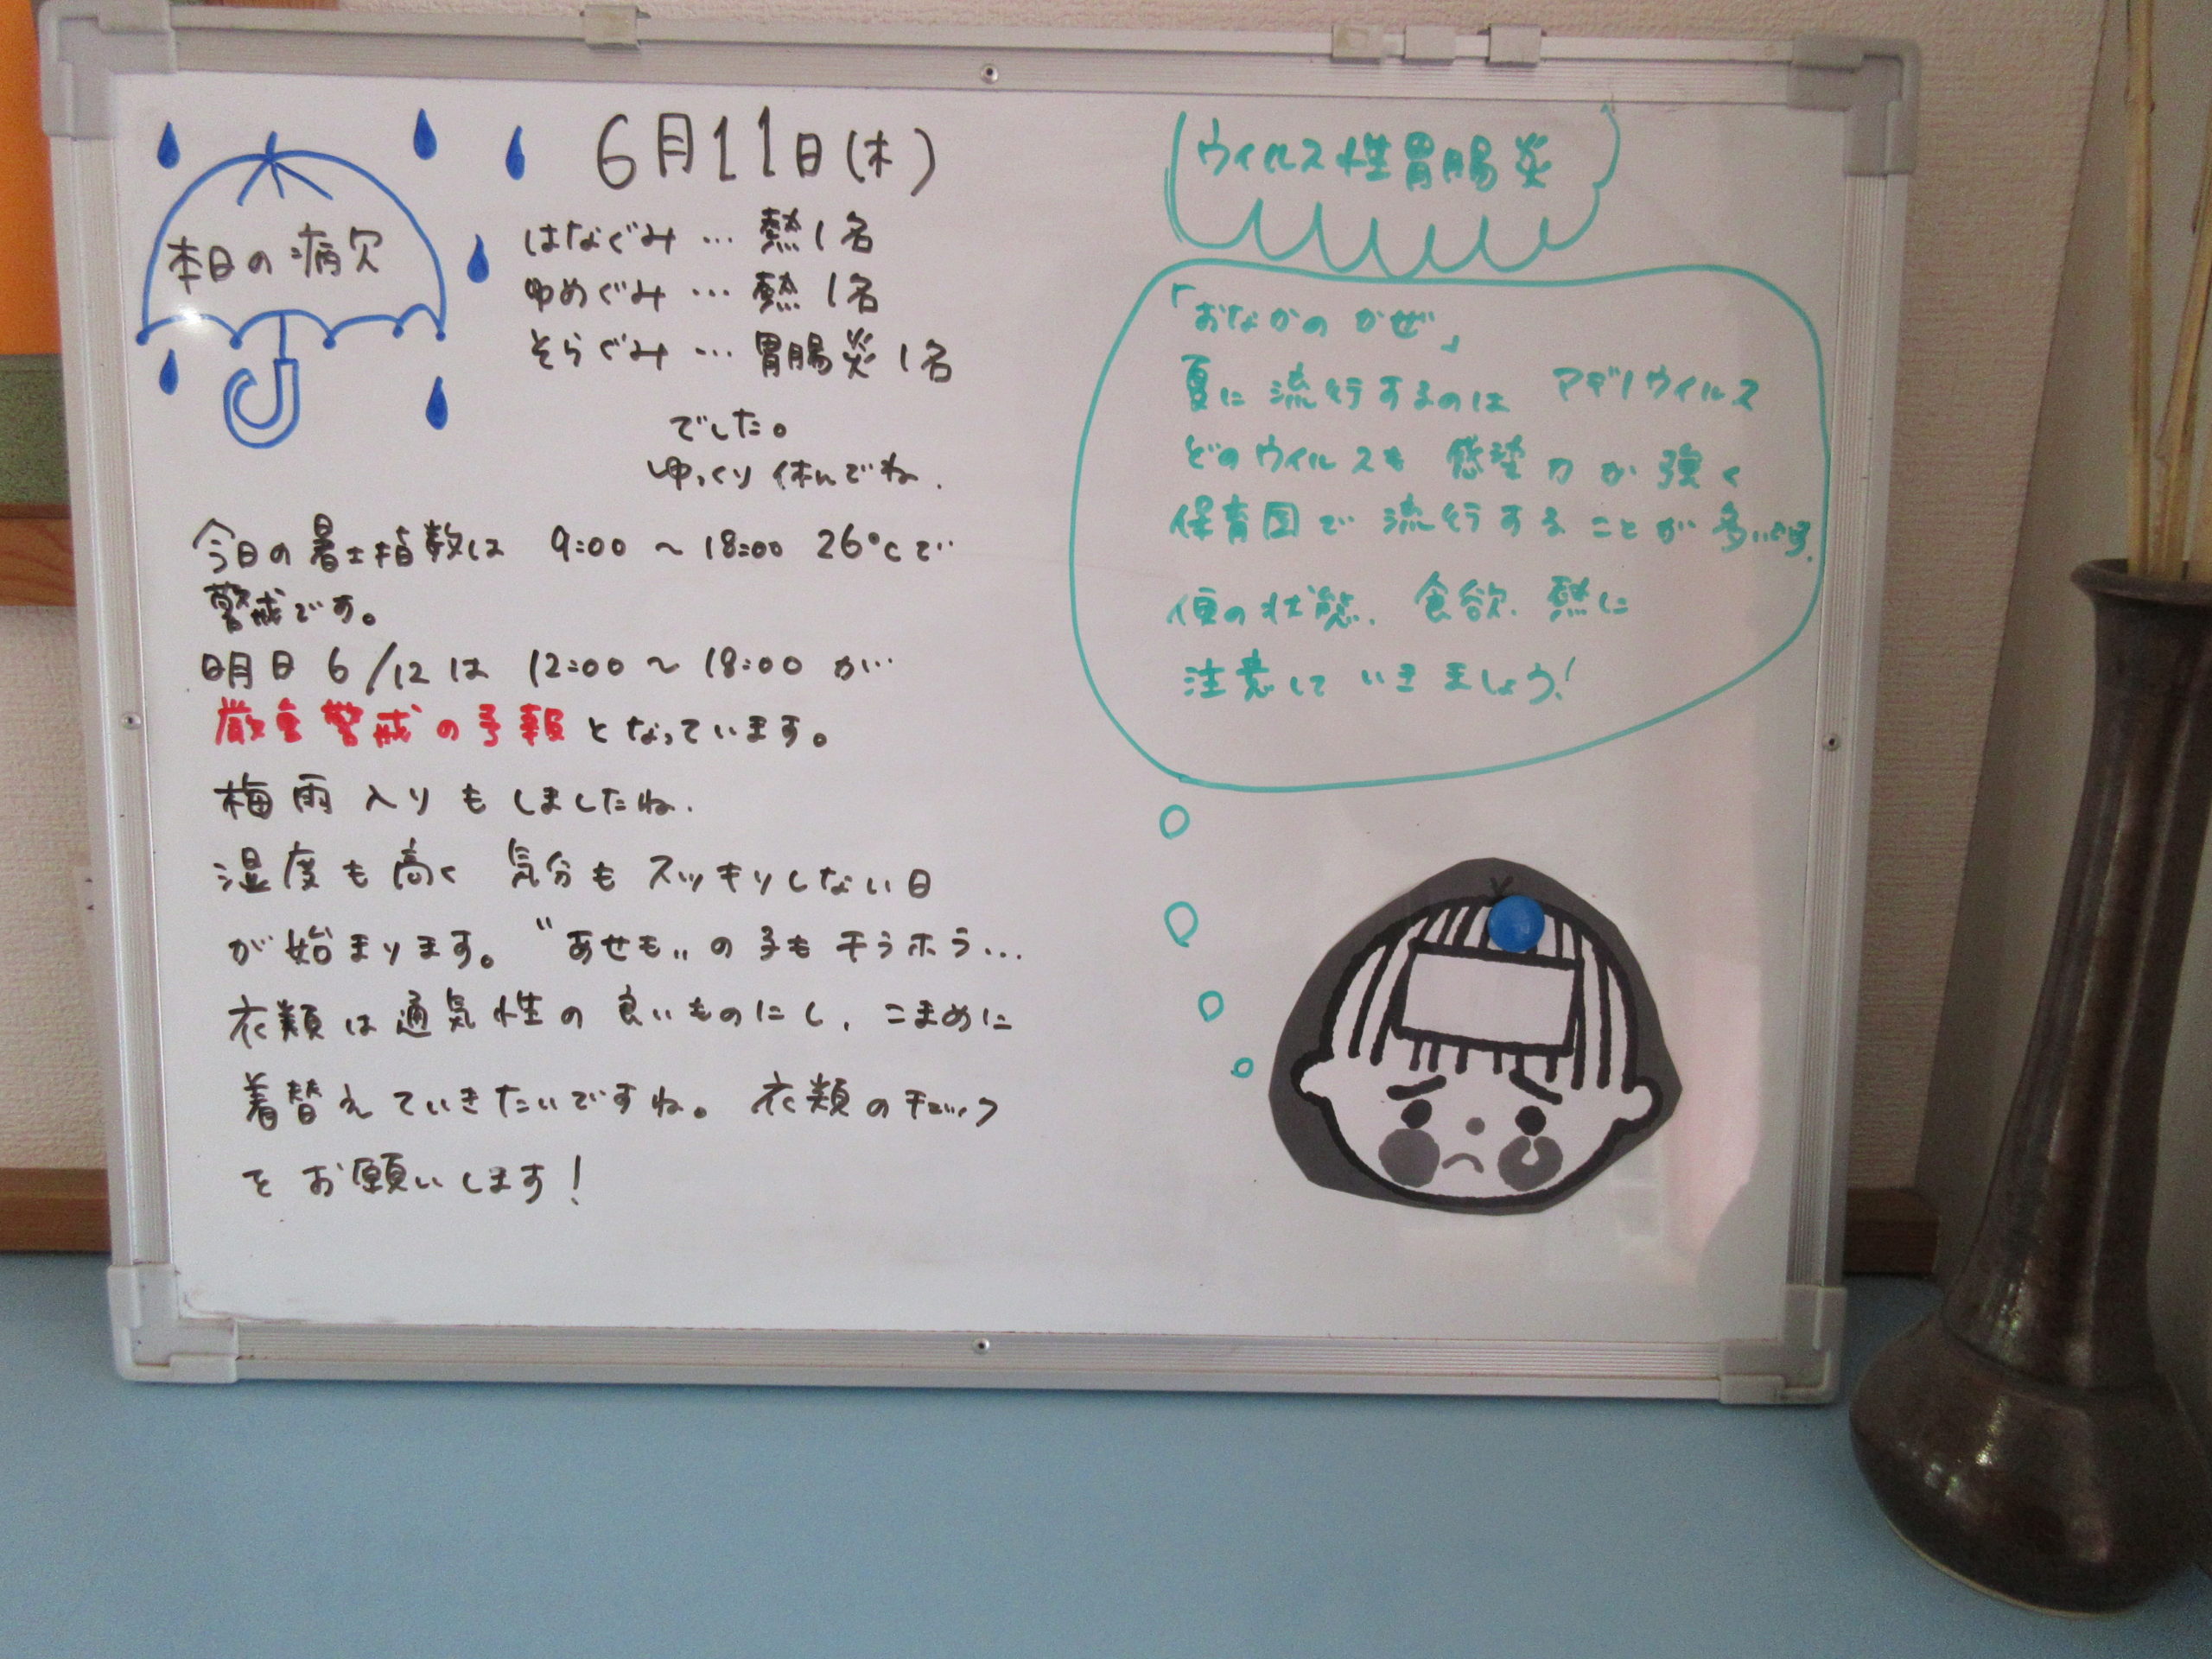 本日の病欠
6月11日(木)
はなぐみ… 熱1名
ゆめぐみ… 熱1名
そらぐみ… 胃腸炎1名
でした。
ゆっくり休んでね.
今日の暑さ指数は 9:00 ~ 18:00 26℃で
警戒です。
明日 6/12は 12:00 ~ 18:00 が
厳重警戒の予報となっています。
梅雨入りもしましたね.
湿度も高く 気分もスッキリしない日
が始まります。"あせも"の子もチラホラ…
衣類は通気性の良いものにし、こまめに
着替えていきたいですね。衣類のチェック
をお願いします!
ウィルス性胃腸炎
「おなかのかぜ」
夏に流行するのは アデノウイルス
どのウイルスも 感染力が強く
保育園で流行することが多いです.
便の状態、食欲、熱に
注意していきましょう!